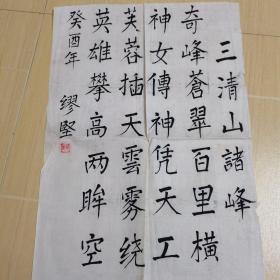 三清山諸峰
奇峰蒼翠百里横
神女傳神凭天工
芙蓉插天雲雾绕
英雄攀高两眸空
癸酉年 缪堅